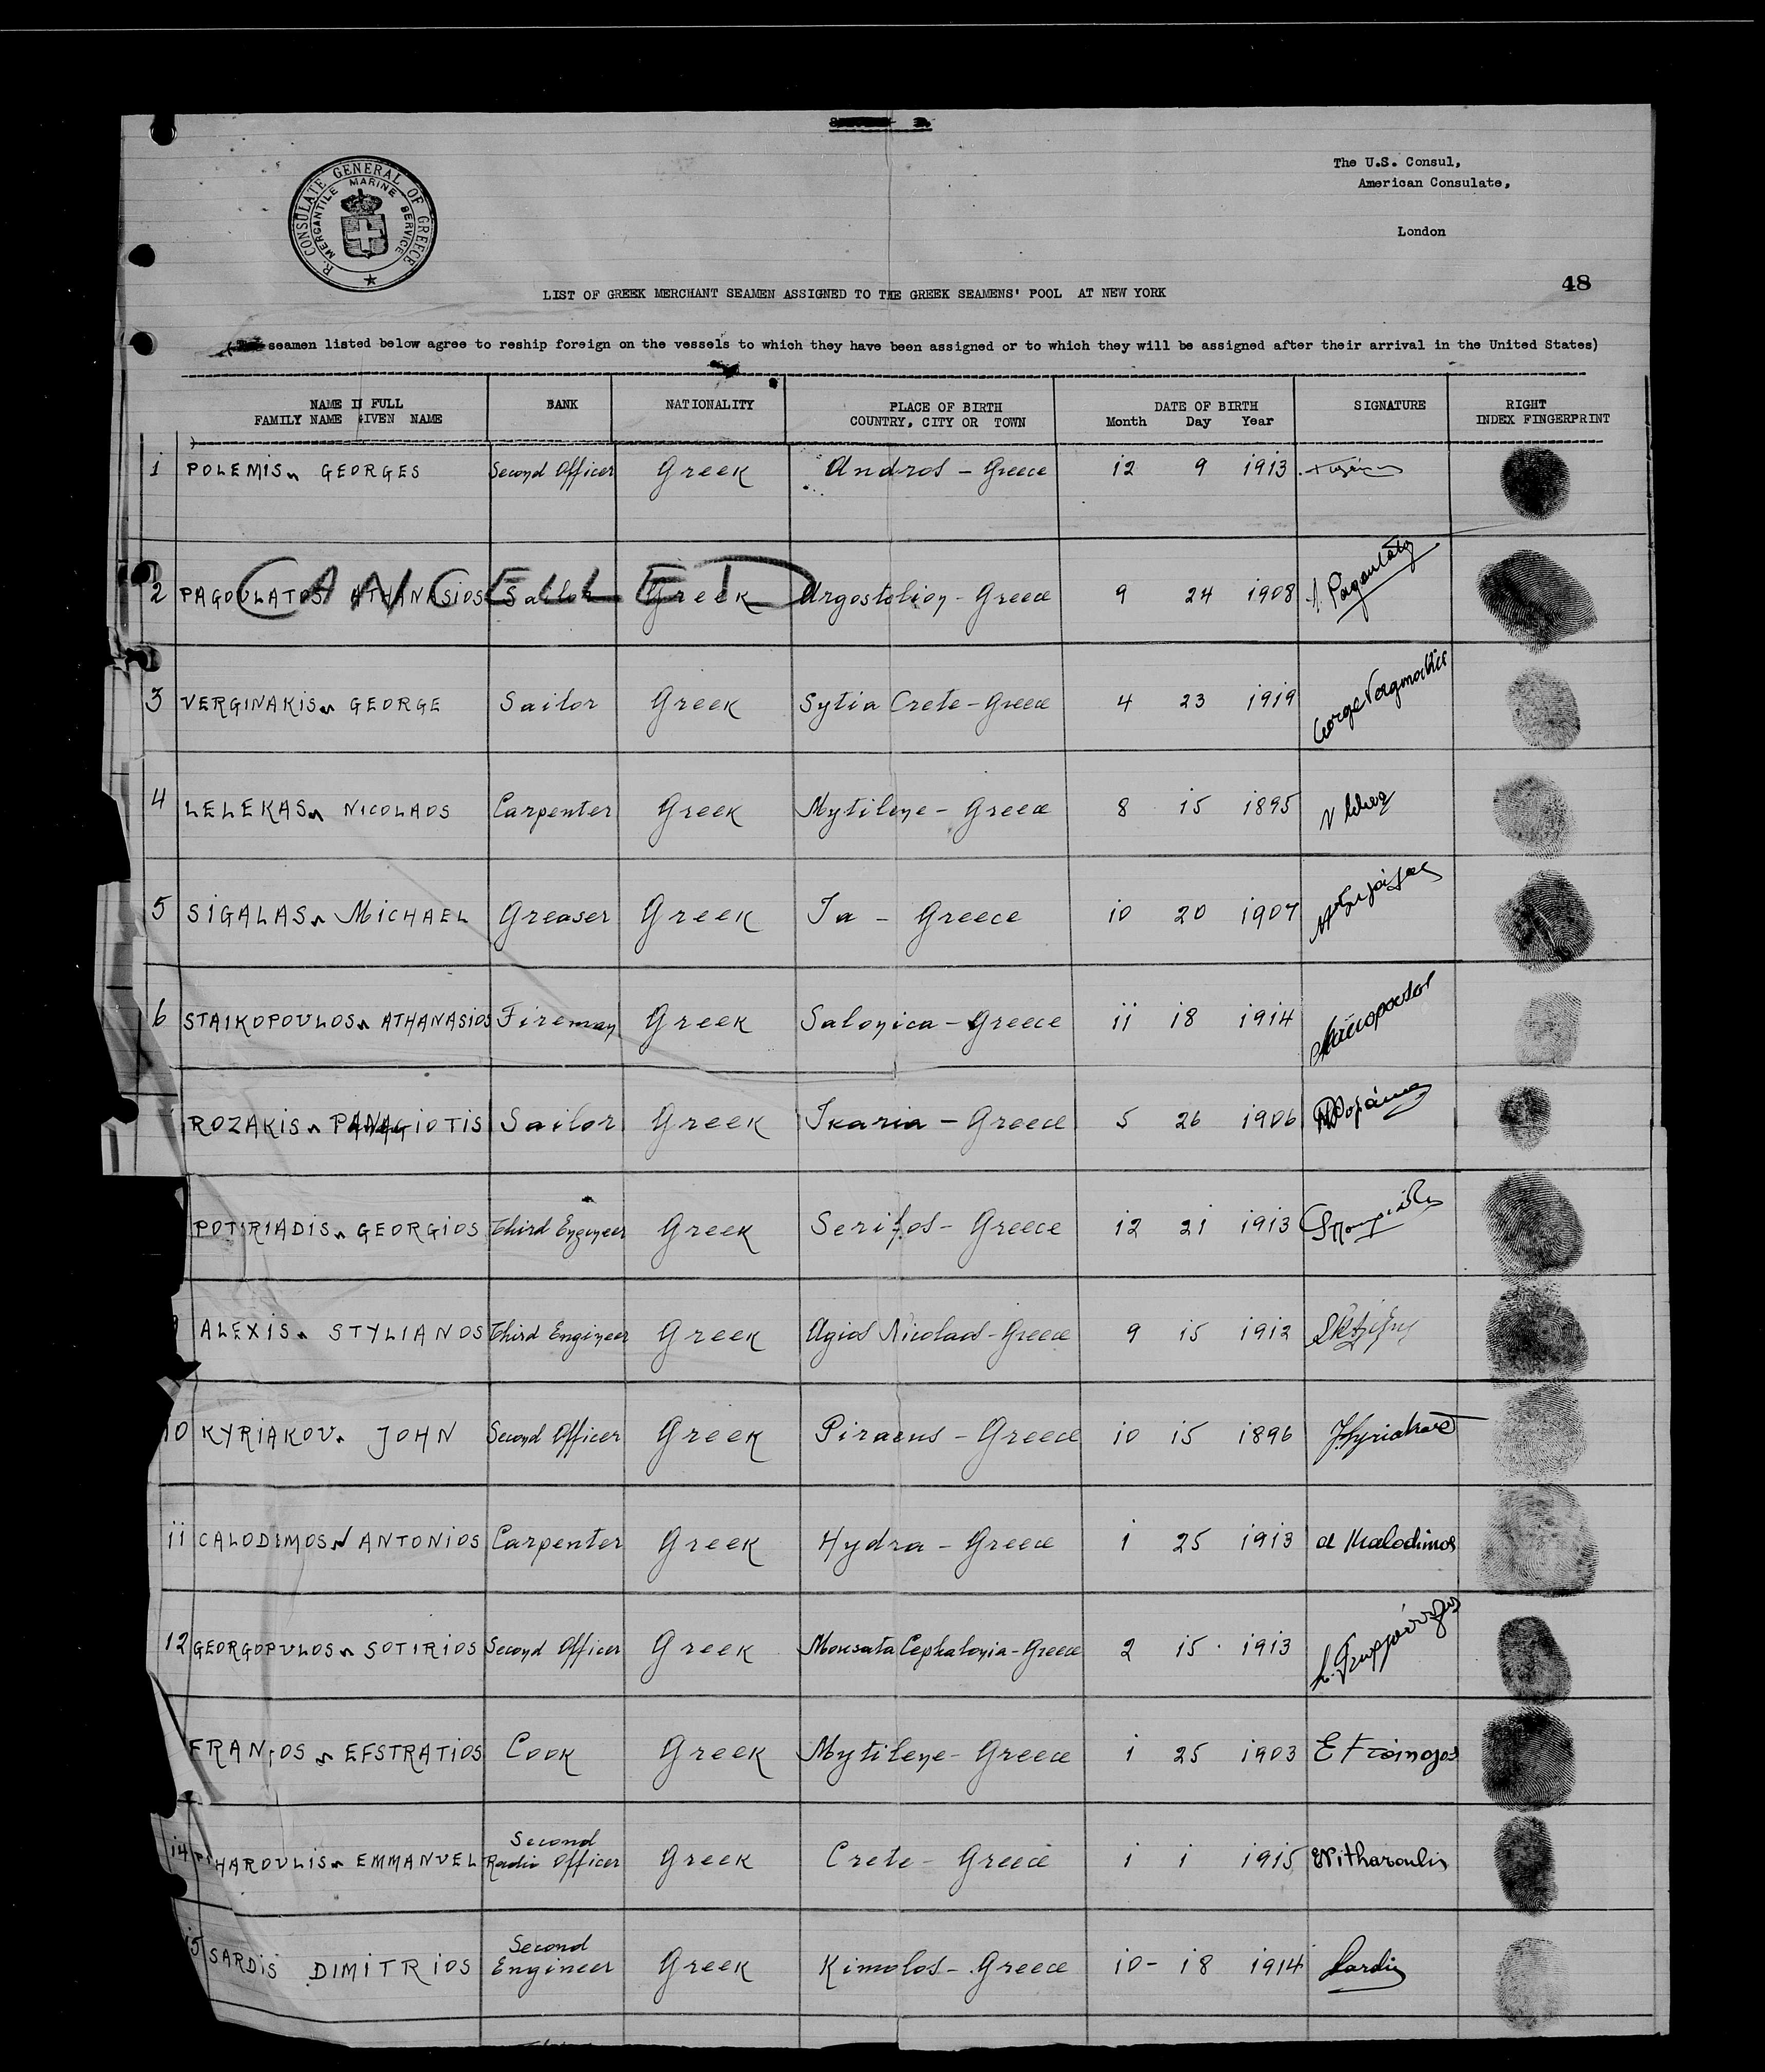 R. CONSULATE GENERAL OF GREECE
MERCANTILE MARINE SERVICE
The U.S. Consul,
American Consulate,
London
48
LIST OF GREEK MERCHANT SEAMEN ASSIGNED TO THE GREEK SEAMENS' POOL AT NEW YORK
seamen listed below agree to reship foreign on the vessels to which they have been assigned or to which they will be assigned after their arrival in the United States)
NAME IN FULL BANK NATIONALITY PLACE OF BIRTH DATE OF BIRTH SIGNATURE RIGHT
FAMILY NAME GIVEN NAME COUNTRY, CITY OR TOWN Month Day Year INDEX FINGERPRINT
1 POLEMIS GEORGES Second Officer Greek Andros - Greece 12 9 1913
CANCELLED
2 PAGOULATOS ATHANASIOS Sailor Greek Argostolion - Greece 9 24 1908 A. Pagoulatos
3 VERGINAKIS GEORGE Sailor Greek Sytia Crete - Greece 4 23 1919 George Verginakis
4 LELEKAS NICOLAOS Carpenter Greek Mytilene - Greece 8 15 1895
5 SIGALAS MICHAEL Greaser Greek Ia - Greece 10 20 1907
6 STAIKOPOULOS ATHANASIOS Fireman Greek Salonica - Greece 11 18 1914
ROZAKIS PANAGIOTIS Sailor Greek Ikaria - Greece 5 26 1906
POTIRIADIS GEORGIOS Third Engineer Greek Serifos - Greece 12 21 1913
9 ALEXIS STYLIANOS Third Engineer Greek Agios Nicolaos - Greece 9 15 1912
10 KYRIAKOU JOHN Second Officer Greek Piraeus - Greece 10 15 1896 J Kyriakou
11 CALODIMOS ANTONIOS Carpenter Greek Hydra - Greece 1 25 1913 A Kalodimos
12 GEORGOPULOS SOTIRIOS Second Officer Greek Mousata Cephalonia - Greece 2 15 1913
EFSTRATIOS Cook Greek Mytilene - Greece 1 25 1903
14 HAROULIS EMMANUEL Second Radio Officer Greek Crete - Greece 1 1 1915 E Pitharoulis
15 SARDIS DIMITRIOS Second Engineer Greek Kimolos - Greece 10 - 18 1914 Sardis